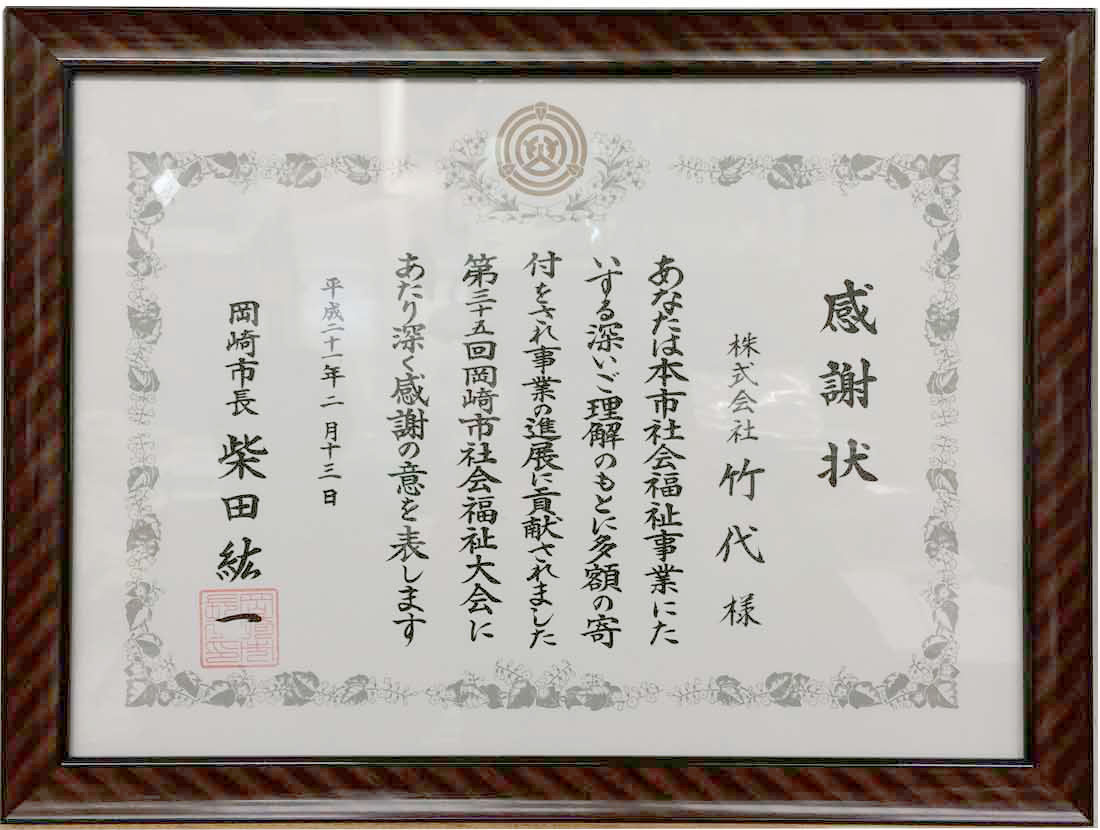 感謝状
株式会社 竹代 様
あなたは本市社会福祉事業にた
いする深いご理解のもとに多額の寄
付をされ事業の進展に貢献されました
第三十五回岡崎市社会福祉大会に
あたり深く感謝の意を表します
平成二十一年二月十三日
岡崎市長 柴田紘一